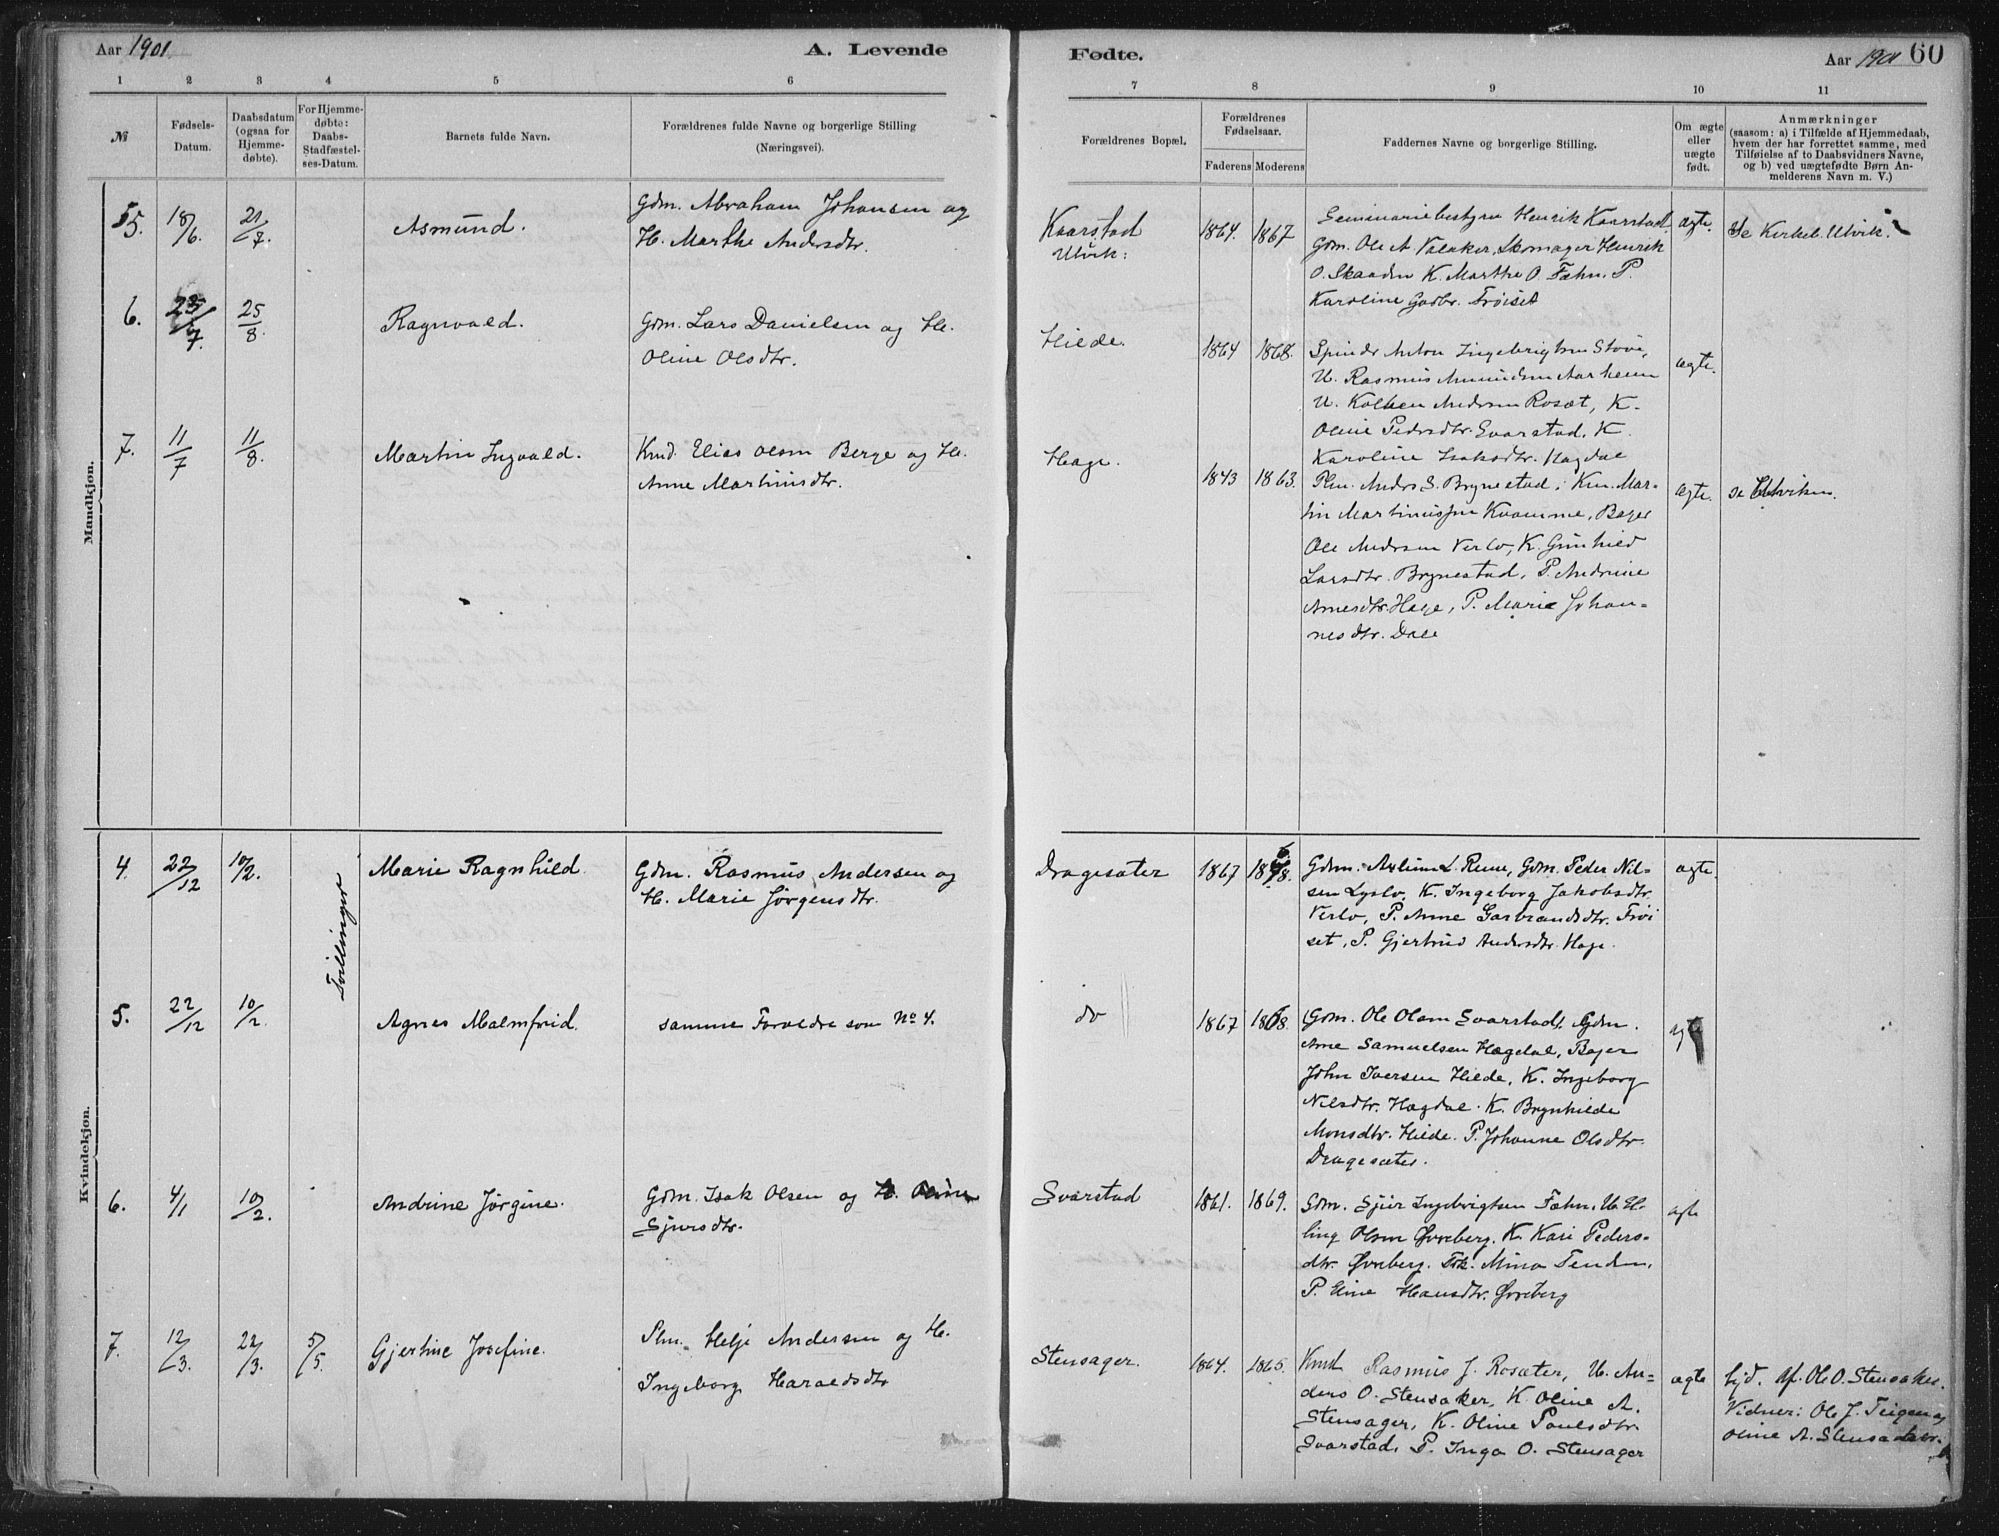 Aar 1901.
A. Levende
Fødte.
Aar 1901
60
1 2 3 4 5 6
7 8 9 10 11
№
Fødsels-
Datum.
Daabsdatum
(ogsaa for
Hjemme-
døbte).
For Hjemme-
døbte:
Daabs-
Stadfæstel-
ses-Datum.
Barnets fulde Navn.
Forældrenes fulde Navne og borgerlige Stilling
(Næringsvei).
Forældrenes Bopæl.
Forældrenes
Fødselsaar.
Faderens Moderens
Faddernes Navne og borgerlige Stilling.
Om ægte
eller
uægte
født.
Anmærkninger
(saasom: a) i Tilfælde af Hjemmedaab,
hvem der har forrettet samme, med
Tilføielse af to Daabsvidners Navne,
og b) ved uægtefødte Børn An-
melderens Navn m. V.)
Mandkjøn.
5. 18/6. 21/7. Asmund.
Gdm. Abraham Johansen og
H. Marthe Andersdtr.
Kaarstad
Utvik:
1864. 1867
Seminariebestyrer Henrik Kaarstad,
Gdm. Ole A Valaker, Skomager Henrik
O. Skaaden K. Marthe O Fæhn. P.
Karoline Gadbr. Frøiset
ægte.
Se Kirkeb. Utvik.
6. 23/7. 25/8. Ragnvald.
Gdm. Lars Danielsen og H.
Oline Olsdtr.
Hilde.
1864 1868.
Anton Ingebrigtsen Støve,
U. Rasmus Amundsen Aarheim
U. Kolben Andersen Rosæt, K.
Oline Pedersdtr. Svarstad, K.
Karoline Isaksdtr. Hagdal
ægte.
7. 11/7 11/8. Martin Ingvald.
Kmd. Elias Olsen Berge og H.
Anne Martinusdtr.
Hage.
1843 1863.
Plm. Anders S. Brynestad, Km. Mar-
tin Martinussen Kvamme, Bager
Ole Andersen Verlo, K. Gunhild
Larsdtr. Brynestad, P. Andrine
Arnesdtr. Hage, P. Marie Johan-
nesdtr. Dale
ægte.
se Utviken.
Kvindekjøn.
4. 22/12 10/2. Marie Ragnhild.
Tvillinger
Gdm. Rasmus Andersen og
H. Marie Jørgensdtr.
Dragesæter
1867 1868.
Gdm. L. Rune, Gdm. Peder Nil-
sen Lyslo, K. Ingeborg Jakobsdtr.
Verlo, P. Anne Garbrandsdtr. Frøi
set, P. Gjertrud Andersdtr. Hage.
ægte.
5. 22/12 10/2. Agnes Malmfrid.
samme Forældre som No 4.
do
1867 1868.
Gdm. Ole Olsen Svarstad, Gdm.
Arne Samuelsen Hægdal, Bager
John Iversen Hilde, K. Ingeborg
Nilsdtr. Hægdal. K. Brynhilde
Monsdtr. Hilde. P. Johanne Olsdtr.
Dragesæter.
6. 4/1 10/2. Andrine Jørgine.
Gdm. Isak Olsen og H. Oline
Sjursdtr.
Svarstad
1861. 1869.
Gdm. Sjur Ingebrigtsen Fæhn, U. El-
ling Olsen Øvreberg, K. Kari Peders-
dtr. Øvreberg. Frk. Mina Tenden,
P. Eline Hansdtr. Øvreberg
ægte
7. 12/3. 22/3. 5/5. Gjertine Josefine.
Plm. Helje Andersen og H.
Ingeborg Haraldsdtr
Stensager.
1864. 1865.
Kmd Rasmus J. Rosæter, U. An-
ders O. Stensaker, K. Oline A.
Stensager, K. Oline Paulsdtr.
Svarstad, P. Inga O. Stensager
ægte
hjd. af. Ole O. Stensaker.
Vidner: Ole J. Teigen og
Oline A. Stensaker.